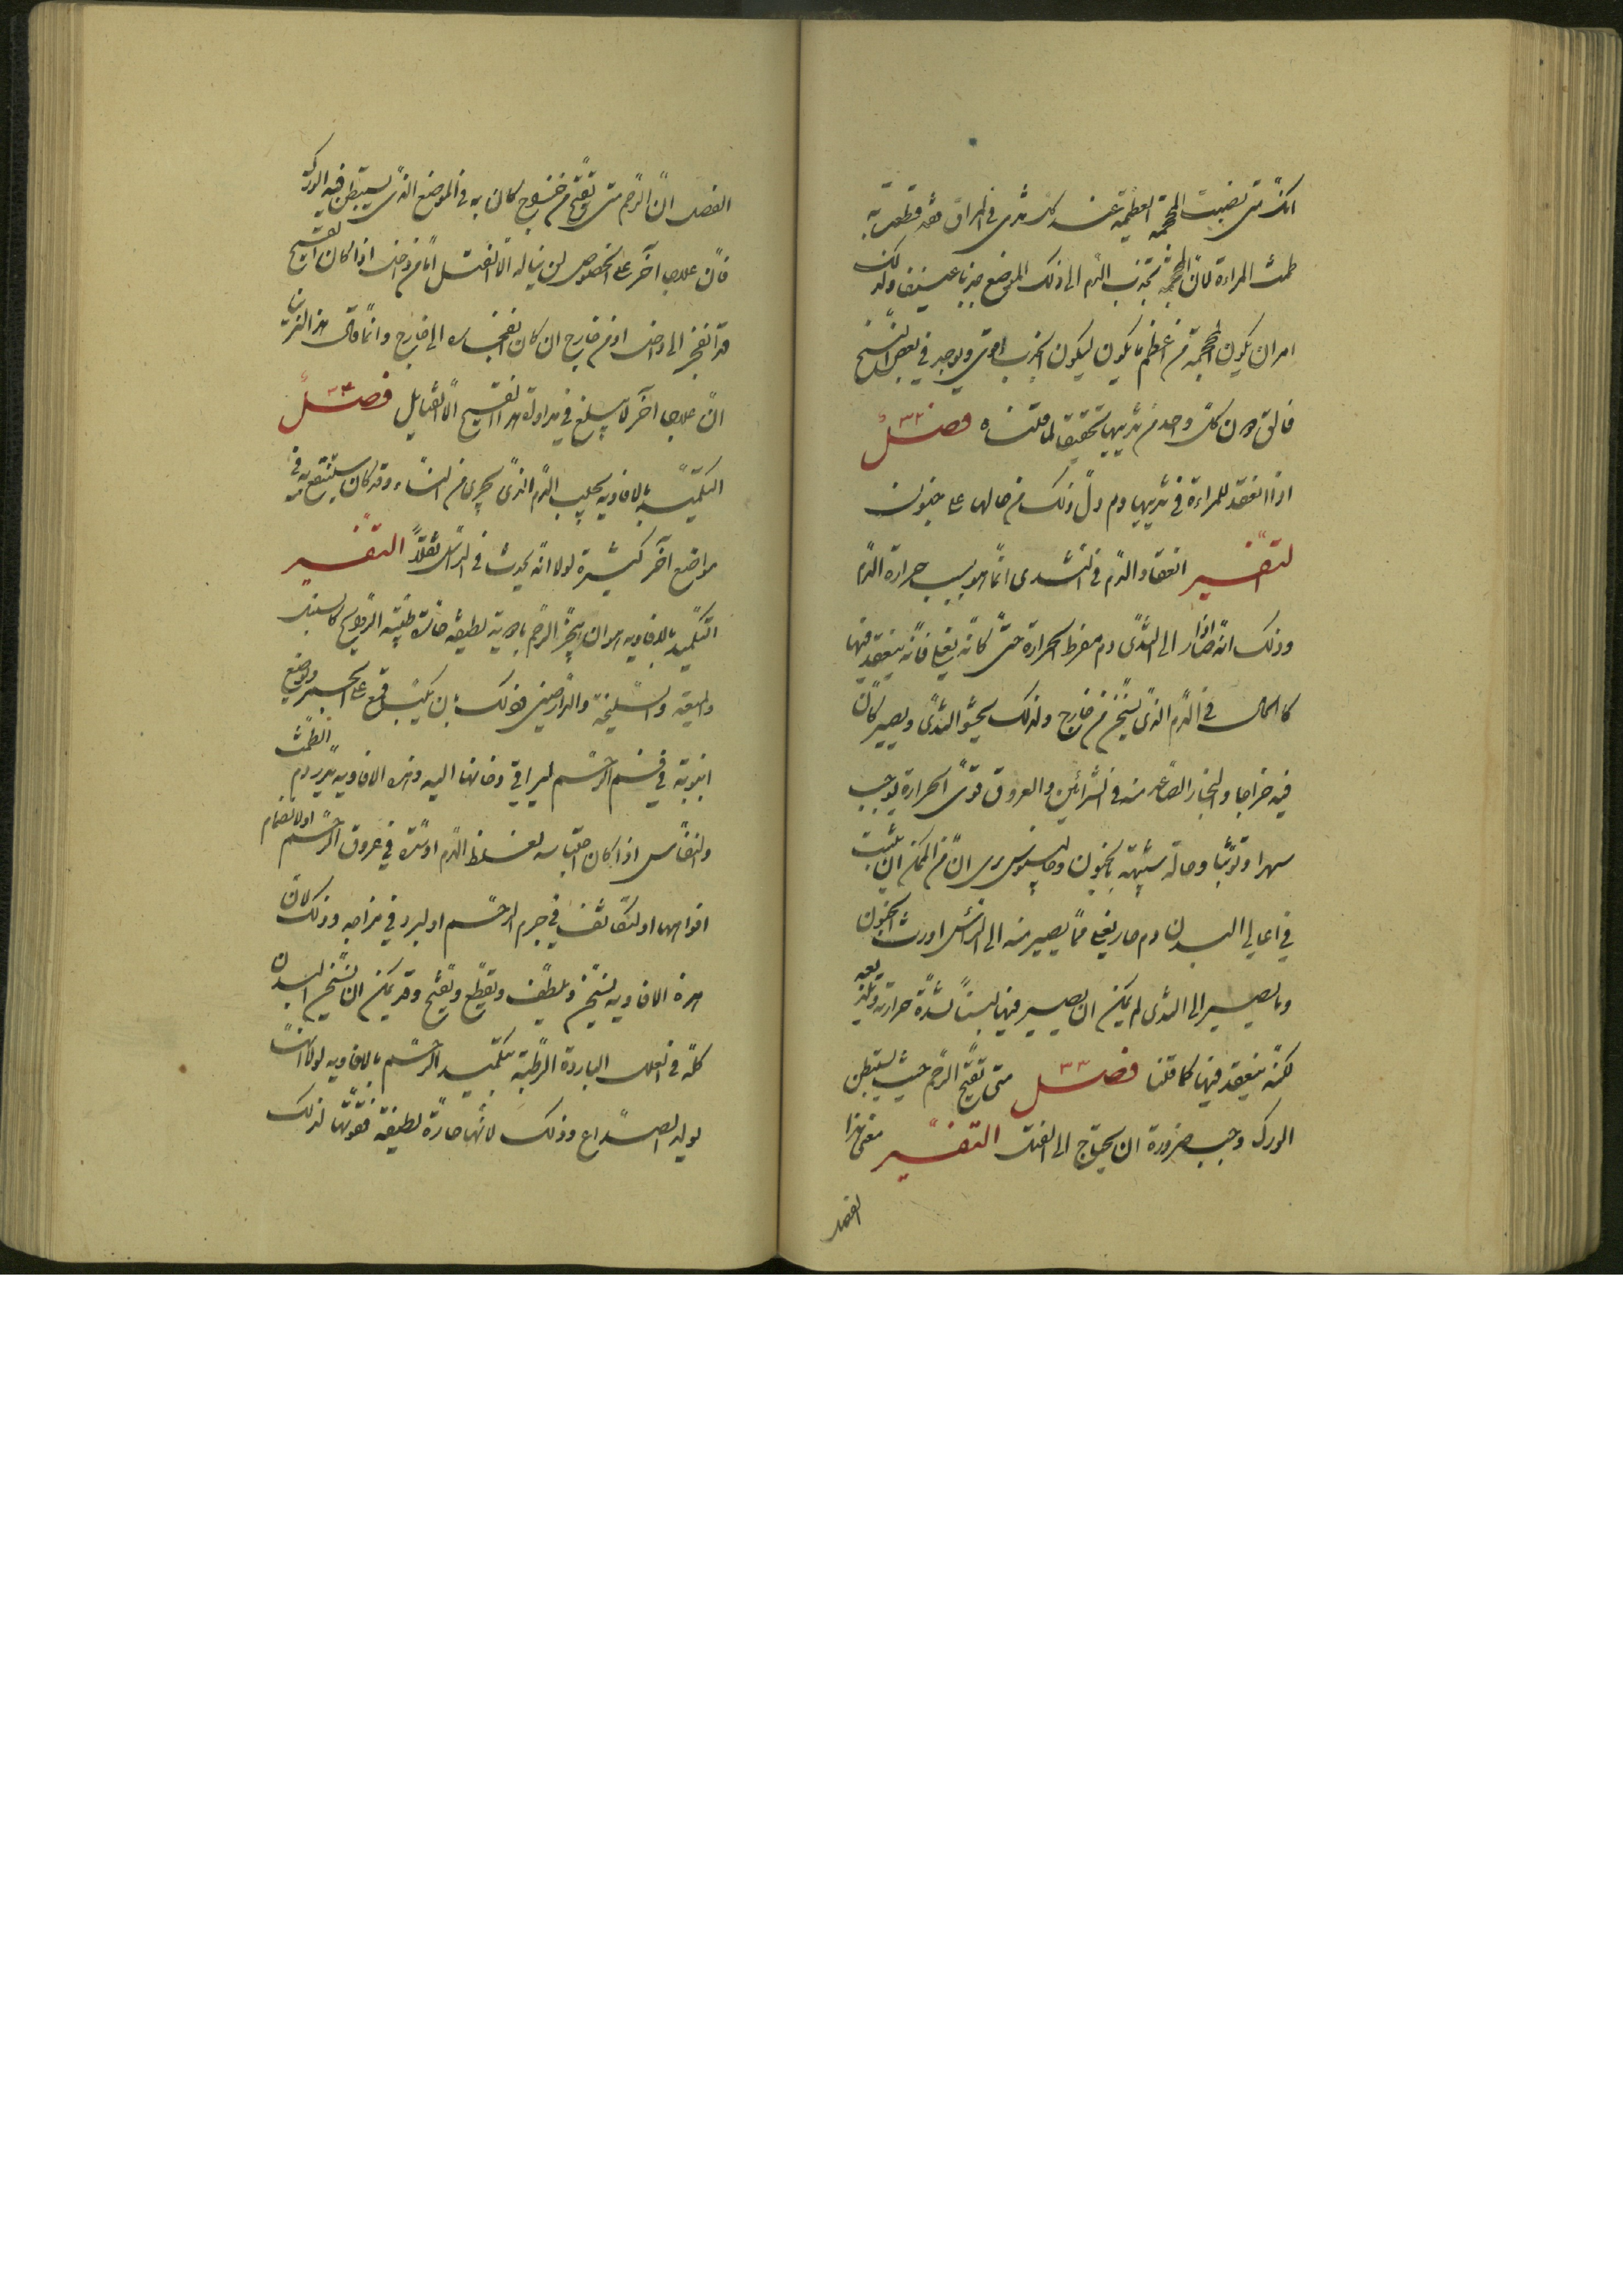 انك متى نصبت المحجمة العظيمة عند كل ثدى فى المراق فقد قطعت به
طمث المراءة لانّ المحجمة تجذب الدم الى ذلك الموضع جذبا عنيفا ولذلك
امر ان يكون المحجمة من اعظم ما يكون ليكون الجذب اقوى ويوجد فى بعض النسخ
فالق دون كلّ واحد من ثدييها تحقيقا لما قلناه فصل ٣٢
اذا انعقد للمراءة فى ثدييها دم دلّ ذلك من حالها على جنون
التفسير انعقاد الدّم فى الثدى انّما هو بسبب حرارة الدّم
وذلك انّه اذا صار الى الثدى دم مفرط الحرارة حتّى كانّه يغلى فانّه ينعقد فيها
كالحال فى الدّم الذى يسخن من خارج ولذلك يحشو الثدى ويصير كانّ
فيه خراجا والبخار الصّاعد منه فى الشرائين والعروق قوىّ الحرارة يوجب
سهرا وتوثّبا وحالة شبيهة بالجنون وجالينوس يرى انّ من الممكن ان يثبت
فى اعالى البدن دم حار يغلى فما يصير منه الى الرأس اورث الجنون
وما يصير الى الثدى لم يمكن ان يصير فيها لبنا لشدّة حرارته وتلذيعه
لكنه ينعقد فيها كما قلنا فصل ٣٣ متى تقيّح الرّحم حيث يستبطن
الورك وجب ضرورة ان يحتاج الى الفتل التفسير معنى هذا
الفصل
الفصل انّ الرّحم متى تقيّح من خراج كان به فى الموضع الذى يستبطن فيه الورك
فانّ علاجا آخر على الخصوص لن يناله الا الفتل امّا من داخل اذا كان القيح
قد انفجر الى داخل او من خارج ان كان انفجاره الى خارج وانّما قال هذا لانّ
انّ علاجا آخر لا يبلغ فى مداواة هذا التقيح الا الفتايل فصل
التكميد بالافاويه يجلب الدّم الذى يجرى من النساء وقد كان ينتفع به فى
مواضع آخر كثيرة لولا انّه يحدث فى الرأس ثقلا التفسير
التكميد بالافاويه هو ان يبخّر الرّحم بادوية لطيفة حارّة طيّبة الروايح كالسنبل
والميعة والسّليخة والدّارصينى وذلك بان يكبّ قمع على الجمر ويوضع
انبوبته فى فم الرّحم ليراقى دخانها اليه وهذه الافاويه يدرّ دم الطّمث
والنفاس اذا كان احتباسه لغلظ الدّم او سدّة فى عروق الرّحم او لانضمام
افواهها او لتكاثف فى جرم الرحم او لبرد فى مزاجه وذلك لانّ
هذه الافاويه تسخّن وتلطّف وتقطّع وتفتّح وقد يمكن ان تسخّن البدن
كلّه فى العلل الباردة الرّطبة بتكميد الرّحم بالافاويه لولا انّها
يولد الصّداع وذلك لانّها حارّة لطيفة فقوّتها لذلك